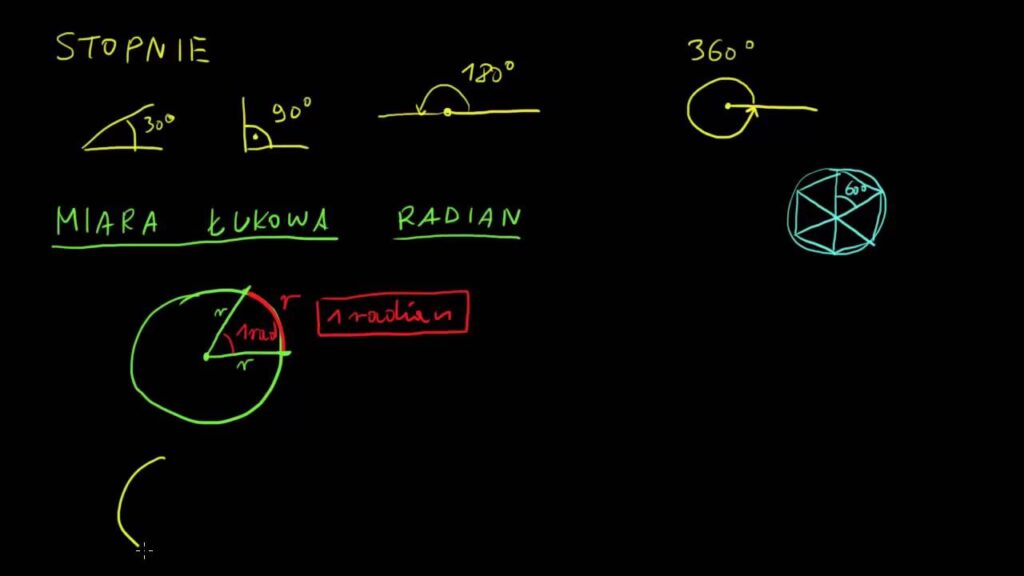 STOPNIE
30°
90°
180°
360°
60°
MIARA ŁUKOWA RADIAN
r
r
1 radian
1rad
r